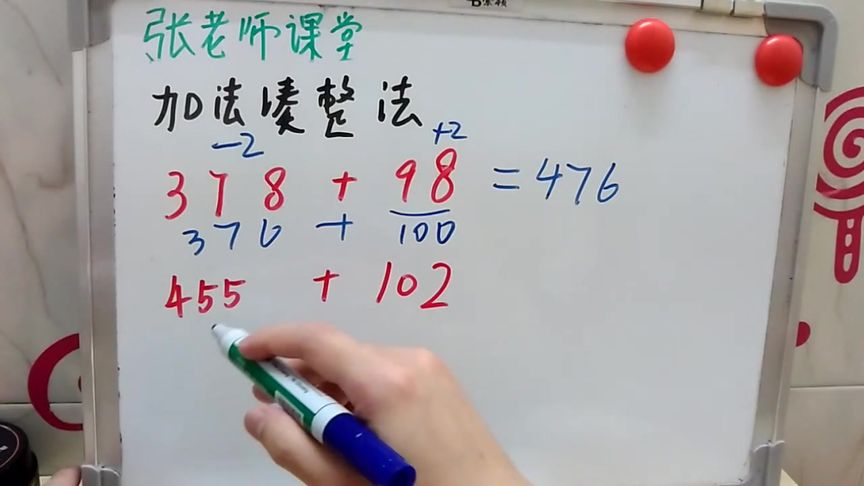 张老师课堂
加法凑整法
-2 +2
378 + 98 = 476
376 + 100
455 + 102